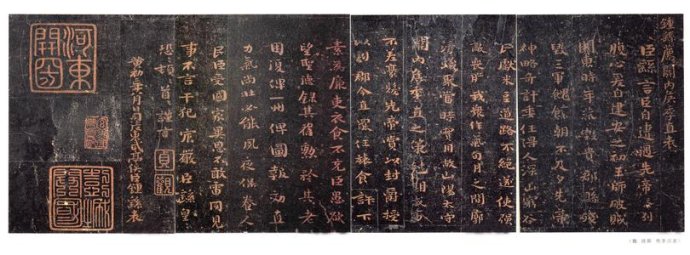 鍾繇薦關內侯季直表
臣繇言臣自遭遇先帝忝列
腹心爰自建安之初王師破賊
關東時年荒穀貴郡縣殘
毀三軍餽饟朝不及夕先帝
神略奇計委任得人深山窮谷
民獻米豆道路不絕遂使強
敵喪膽我眾作氣旬月之間廓
清蟻聚當時實用故山陽太守
關內侯季直之策剋期成事
不差豪髮先帝賞以封爵授
以劇郡今直罷任旅食許下
素為廉吏衣食不充臣愚欲
望聖德錄其舊勳矜其老
困復俾一州俾圖報效直
力氣尚壯必能夙夜保養人
民臣受國家異恩不敢雷同見
事不言干犯宸嚴臣繇皇
恐皇恐頓首頓首謹言
貞觀
黃初二年八月日司徒東武亭侯臣鍾繇表
河東